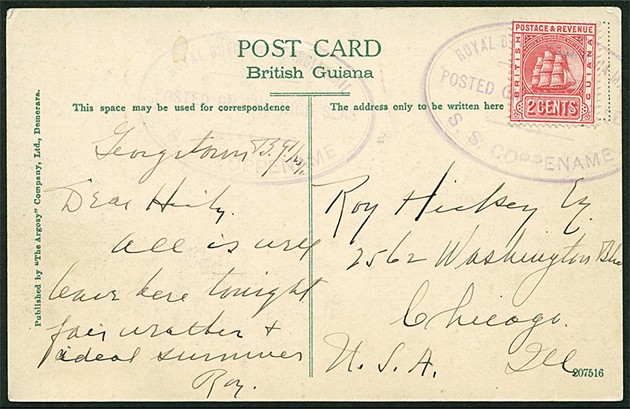 POST CARD
British Guiana
This space may be used for correspondence
The address only to be written here
POSTAGE & REVENUE
BRITISH
GUIANA
2 CENTS
POSTED
S. S. COPPENAME
POSTED
SEAS
COPPENAME
Georgetown B.G.
Dear
All is well
leave here tonight
fair weather &
ideal summer
Roy.
Roy Hickey
2562 Washington
Chicago.
U. S. A. Ill
207516
Published by "The Argosy" Company, Ltd., Demerara.